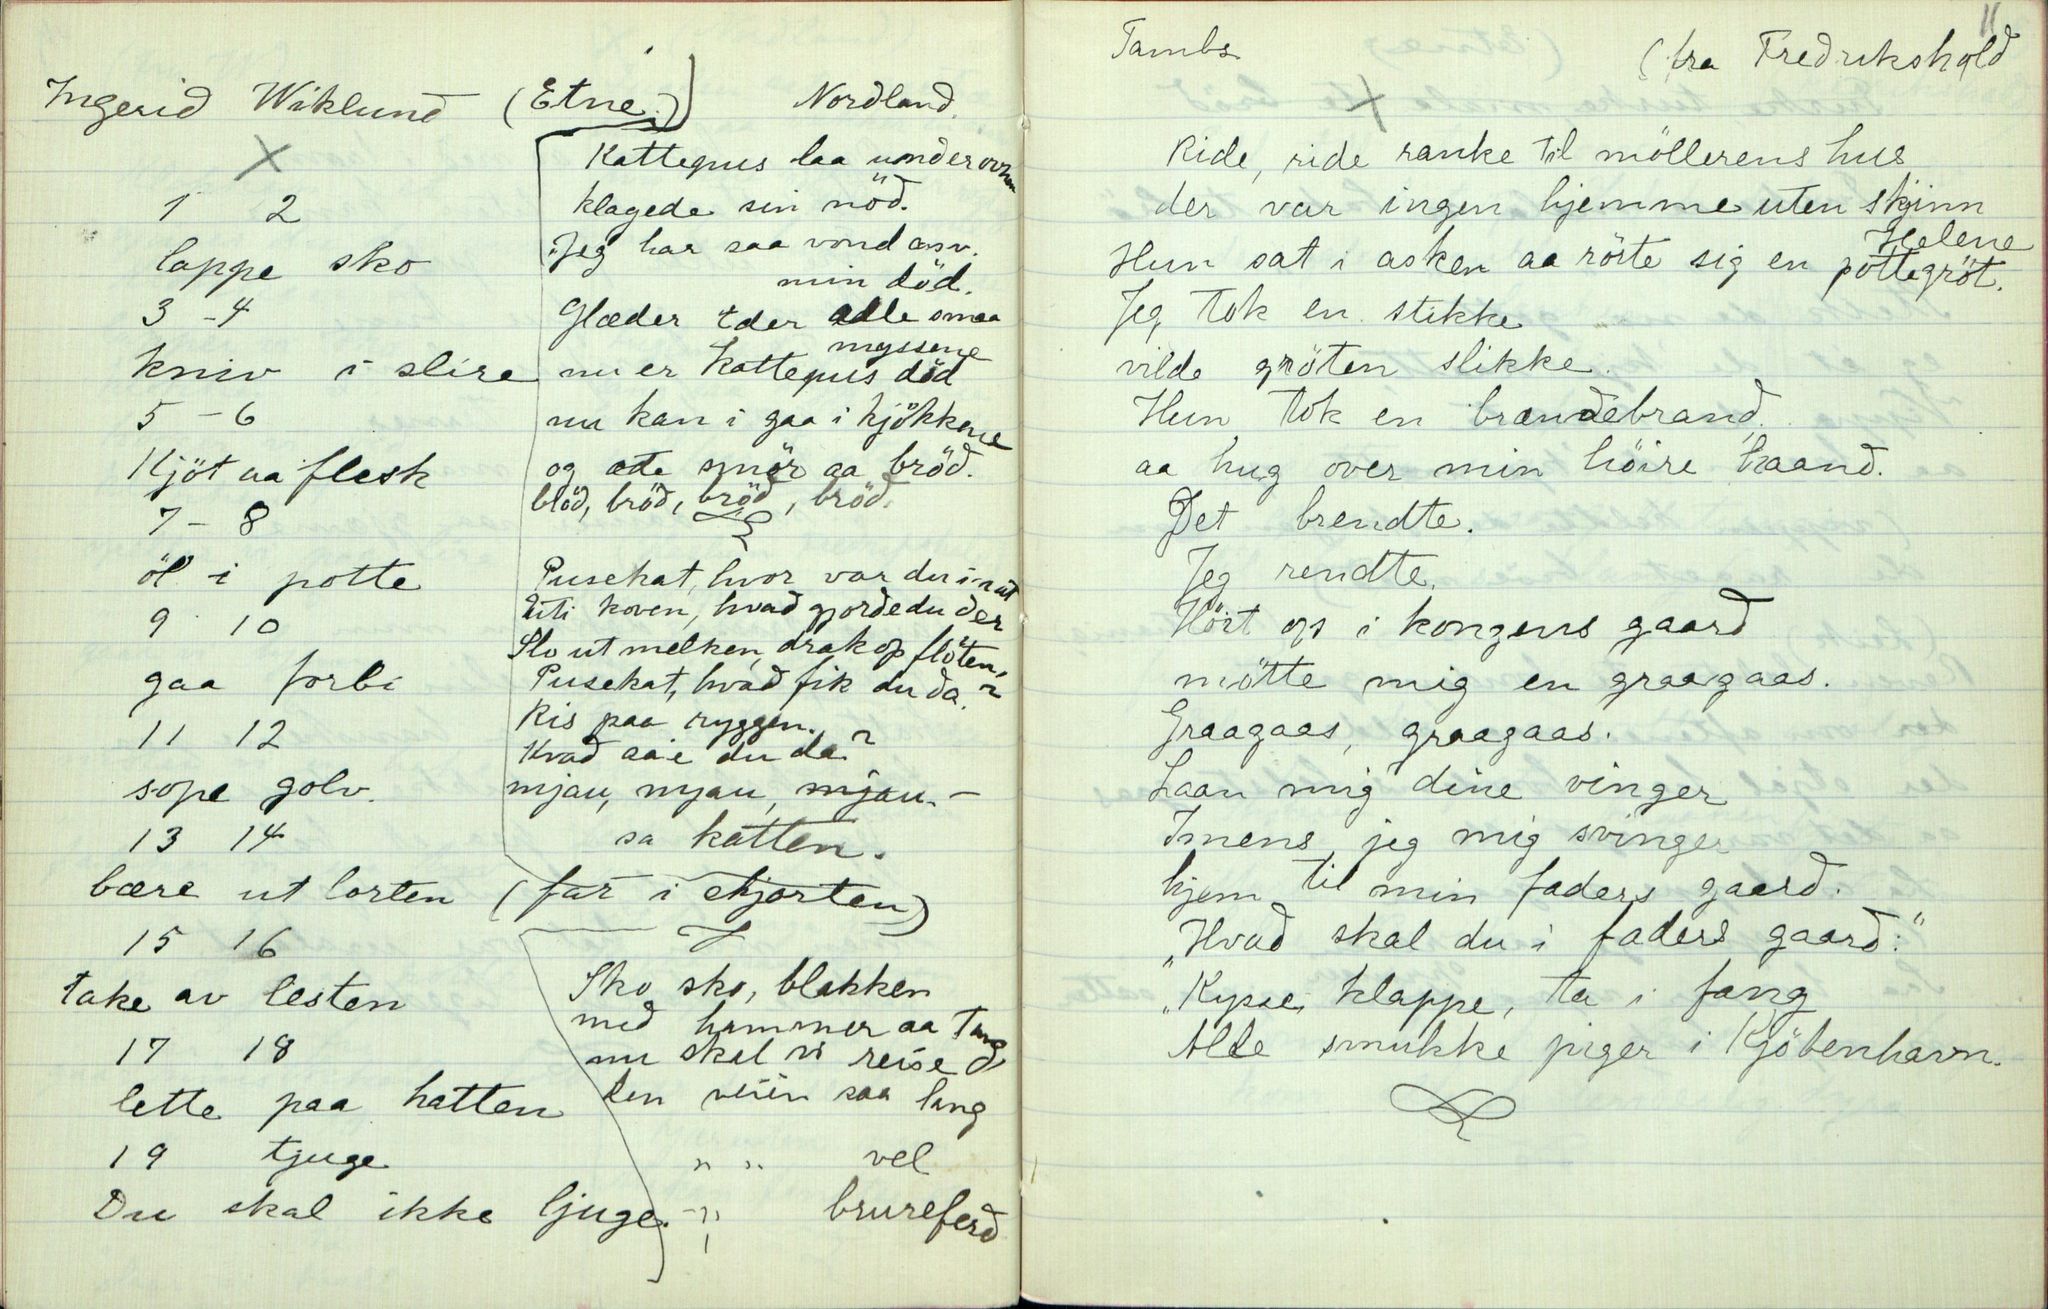 Ingerid Wiklund (Etne)
1 2
lappe sko
3 - 4
kniv i slire
5 - 6
Kjöt aa flesk
7 - 8
öl i potte
9 10
gaa forbi
11 12
sope golv.
13 14
bære ut lorten (far i skjorten)
15 16
take av lesten
17 18
lette paa hatten
19 tjuge
Du skal ikke ljuge.
Nordland.
Kattepus laa under ovnen
klagede sin nöd.
Jeg har saa vond
min död.
Glæder eder alle smaa
myssene
nu er kattepus död
nu kan i gaa i kjökkene
og æte smör aa bröd.
blöd, bröd, bröd, bröd.
Pusekat, hvor var du i nat
Uti koven, hvad gjorde du der
Slo ut melken, drak op flöten.
Pusekat, hvad fik du da?
Ris paa ryggen.
Kvad sa'e du da?
mjau, mjau, mjau. -
sa katten.
Sko sko, blakken
med hammer aa tang
nu skal vi reise
den veiin saa lang
" " vel
" brureferd
11
Tambs (fra Fredrikshald
Ride, ride ranke til möllerens hus
der var ingen hjemme uten skjinn
Helene
Hun sat i asken aa rörte sig en pottegröt.
Jeg tok en stikke
vilde gröten slikke.
Hun tok en brændebrand
aa hug over min höire haand.
Det brendte.
Jeg rendte.
Höit op i kongens gaard
mötte mig en graagaas.
Graagaas, graagaas.
Laan mig dine vinger
Imens jeg mig svinger
hjem til min faders gaard.
"Hvad skal du i faders gaard:"
"Kysse, klappe, ta i fang
Alle smukke piger i Kjöbenhavn.